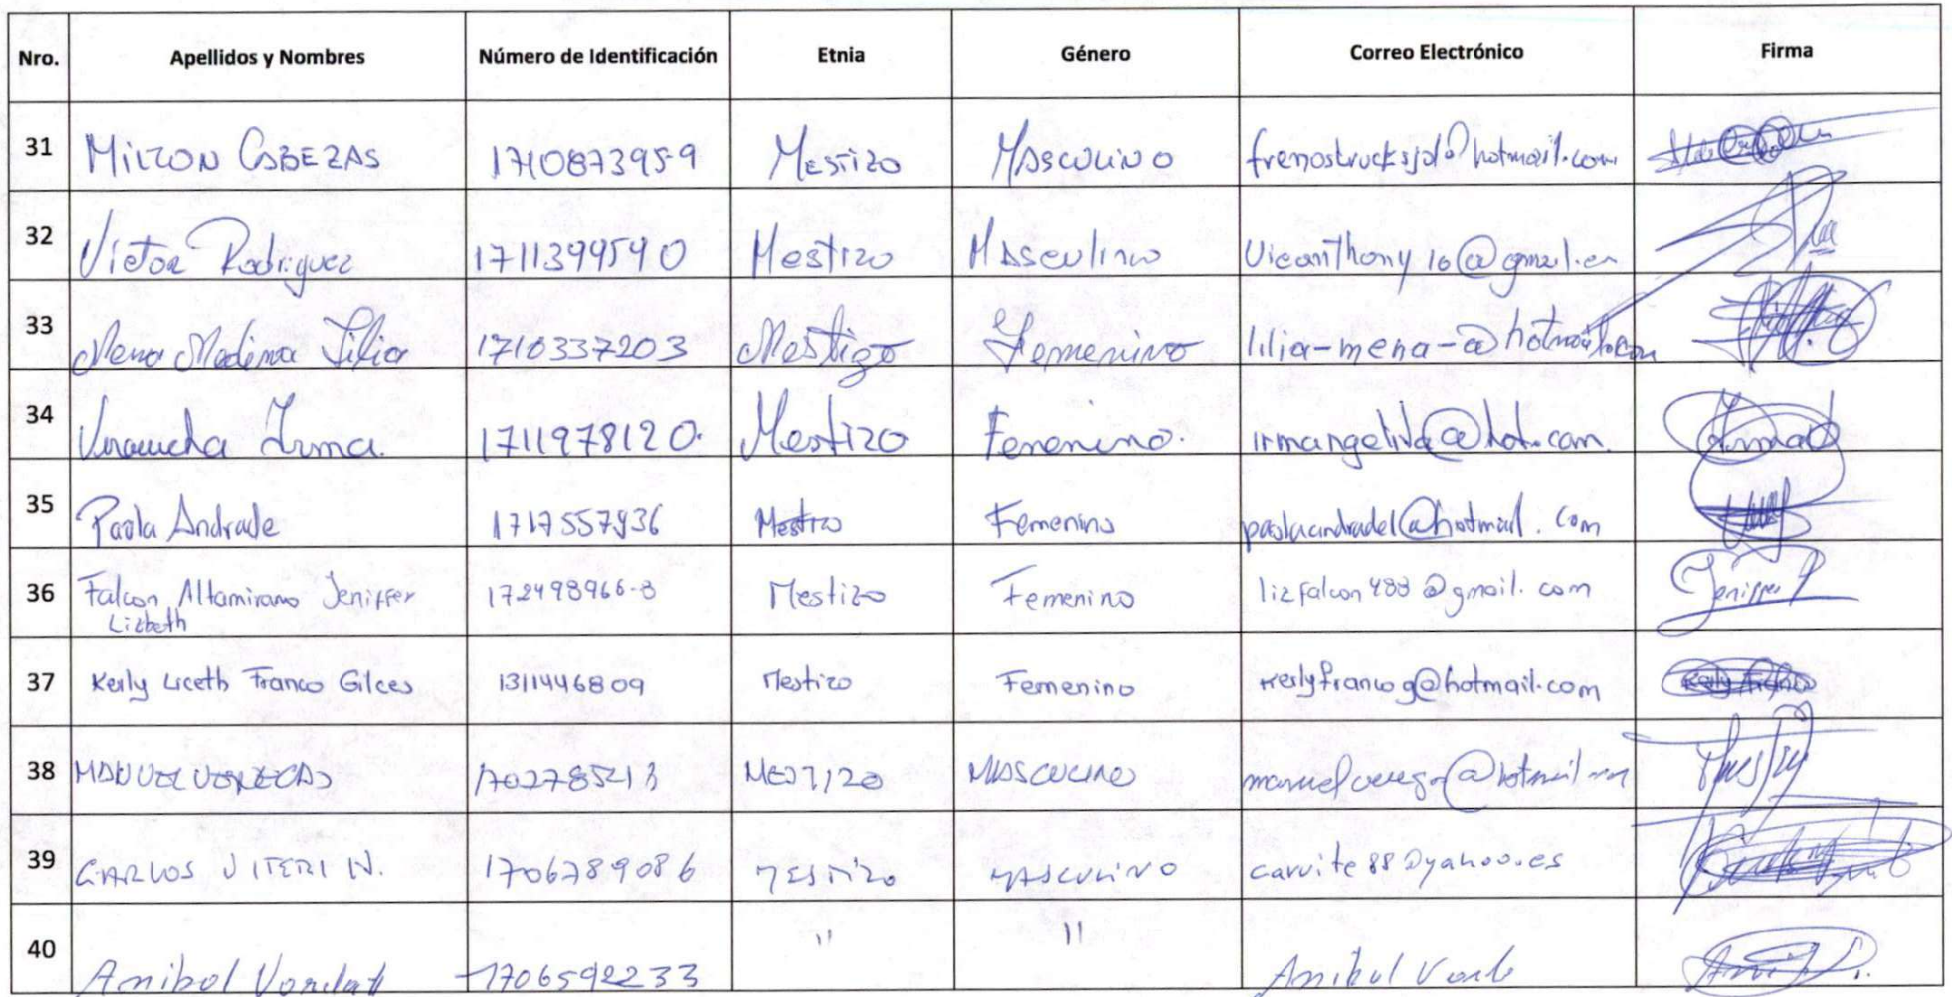 Nro. Apellidos y Nombres Número de Identificación Etnia Género Correo Electrónico Firma
31 MILTON CABEZAS 171087395-9 MESTIZO MASCULINO frenostrucksjd@hotmail.com
32 Victor Rodriguez 1711399590 Mestizo MAsculino Vicanthony10@gmail.
33 Mena Medina Lilia 1710337203 Mestizo Femenino lilia-mena-@hotmail.com
34 Irma. 1711978120. Mestizo Femenino. @hot.com.
35 Paola Andrade 1717557936 Mestizo Femenino paolaandrade1@hotmail.com
36 Falcon Altamirano Jeniffer 172498966-8 Mestizo Femenino lizfalcon488@gmail.com Jeniffer
Lizbeth
37 Kerly Liceth Franco Gilces 1311446809 Mestizo Femenino kerlyfrancog@hotmail.com Kerly Franco
38 MANUEL VENEGAS MESTIZO MASCULINO
39 CARLOS VITERI N. 1706789086 MESTIZO MASCULINO carvite88@yahoo.es
40 Anibal 1706592233 " " Anibal